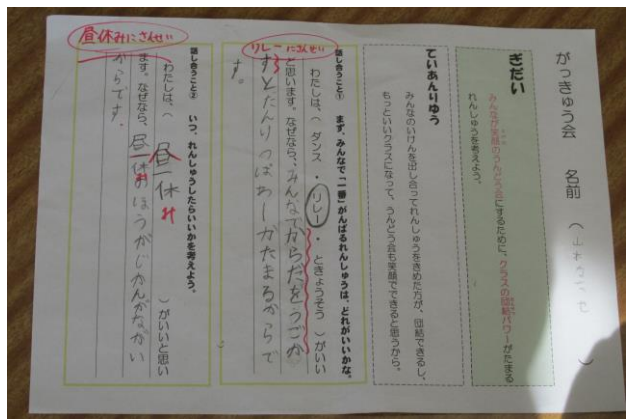 がっきゅう会　名前（　　）
ぎだい
みんなが笑顔のうんどう会にするために、クラスの団結パワーがたまる
れんしゅうを考えよう。
ていあんりゆう
みんなのいけんを出し合ってれんしゅうをきめた方が、団結できるし、
もっといいクラスになって、うんどう会も笑顔でできると思うから。
リレーにさんせい
話し合うこと① まず、みんなで「一番」がんばるれんしゅうは、どれがいいかな。
わたしは、（ ダンス ・ リレー ・ ときょうそう ）がいい
と思います。なぜなら、みんなでからだをうごか
すとだんけつぱわーがたまるからで
す。
昼休みにさんせい
話し合うこと② いつ、れんしゅうしたらいいかを考えよう。
わたしは、（ 昼休み ）がいいと思い
ます。なぜなら、昼休みのほうがじかんがながい
からです。